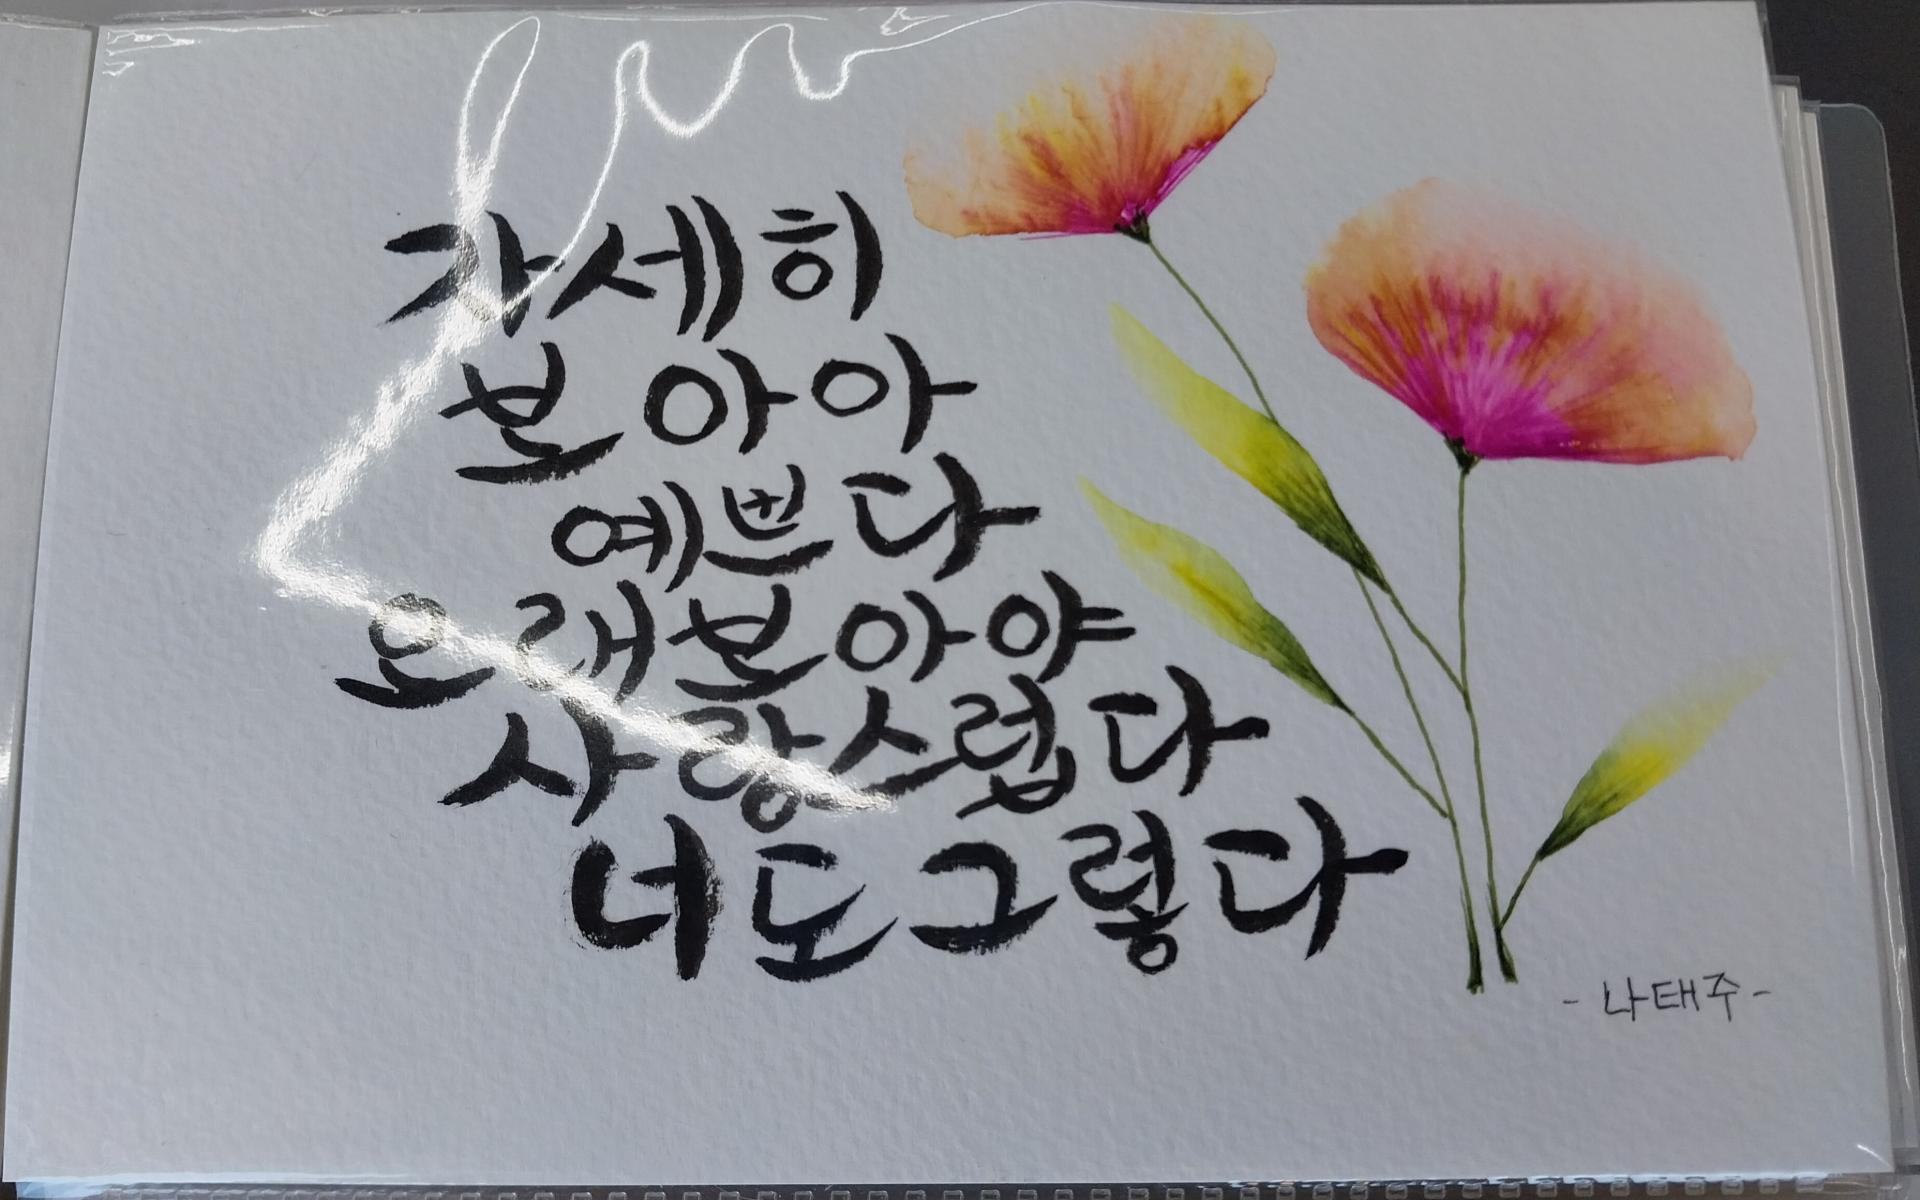 자세히
보아아
예쁘다
오래보아야
사랑스럽다
너도그렇다
- 나태주 -